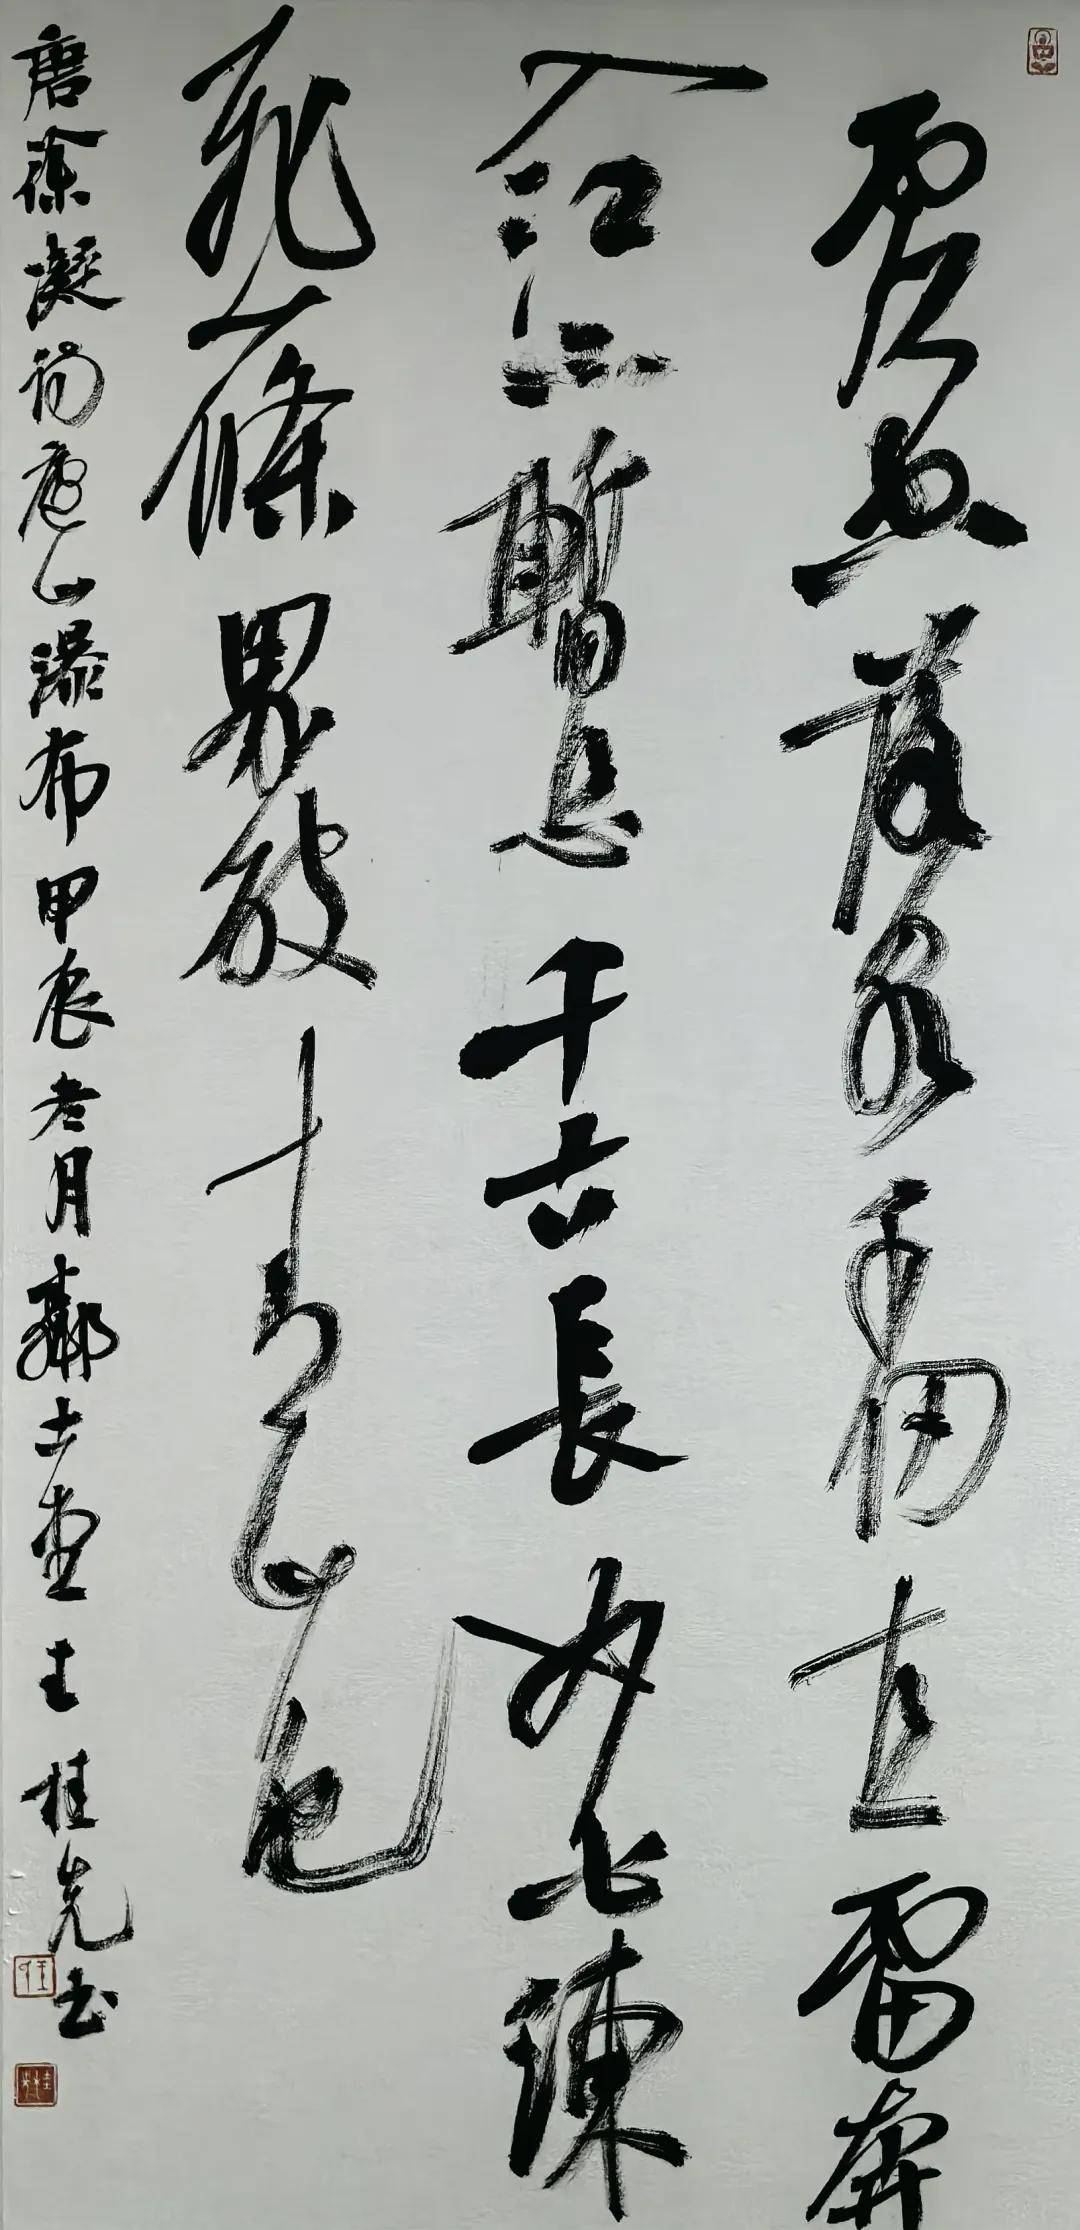 虚空落泉千仞直雷奔
入江不暫息千古長如白練
飛一條界破青山色
唐徐凝詩廬山瀑布甲辰月古堂王桂先书